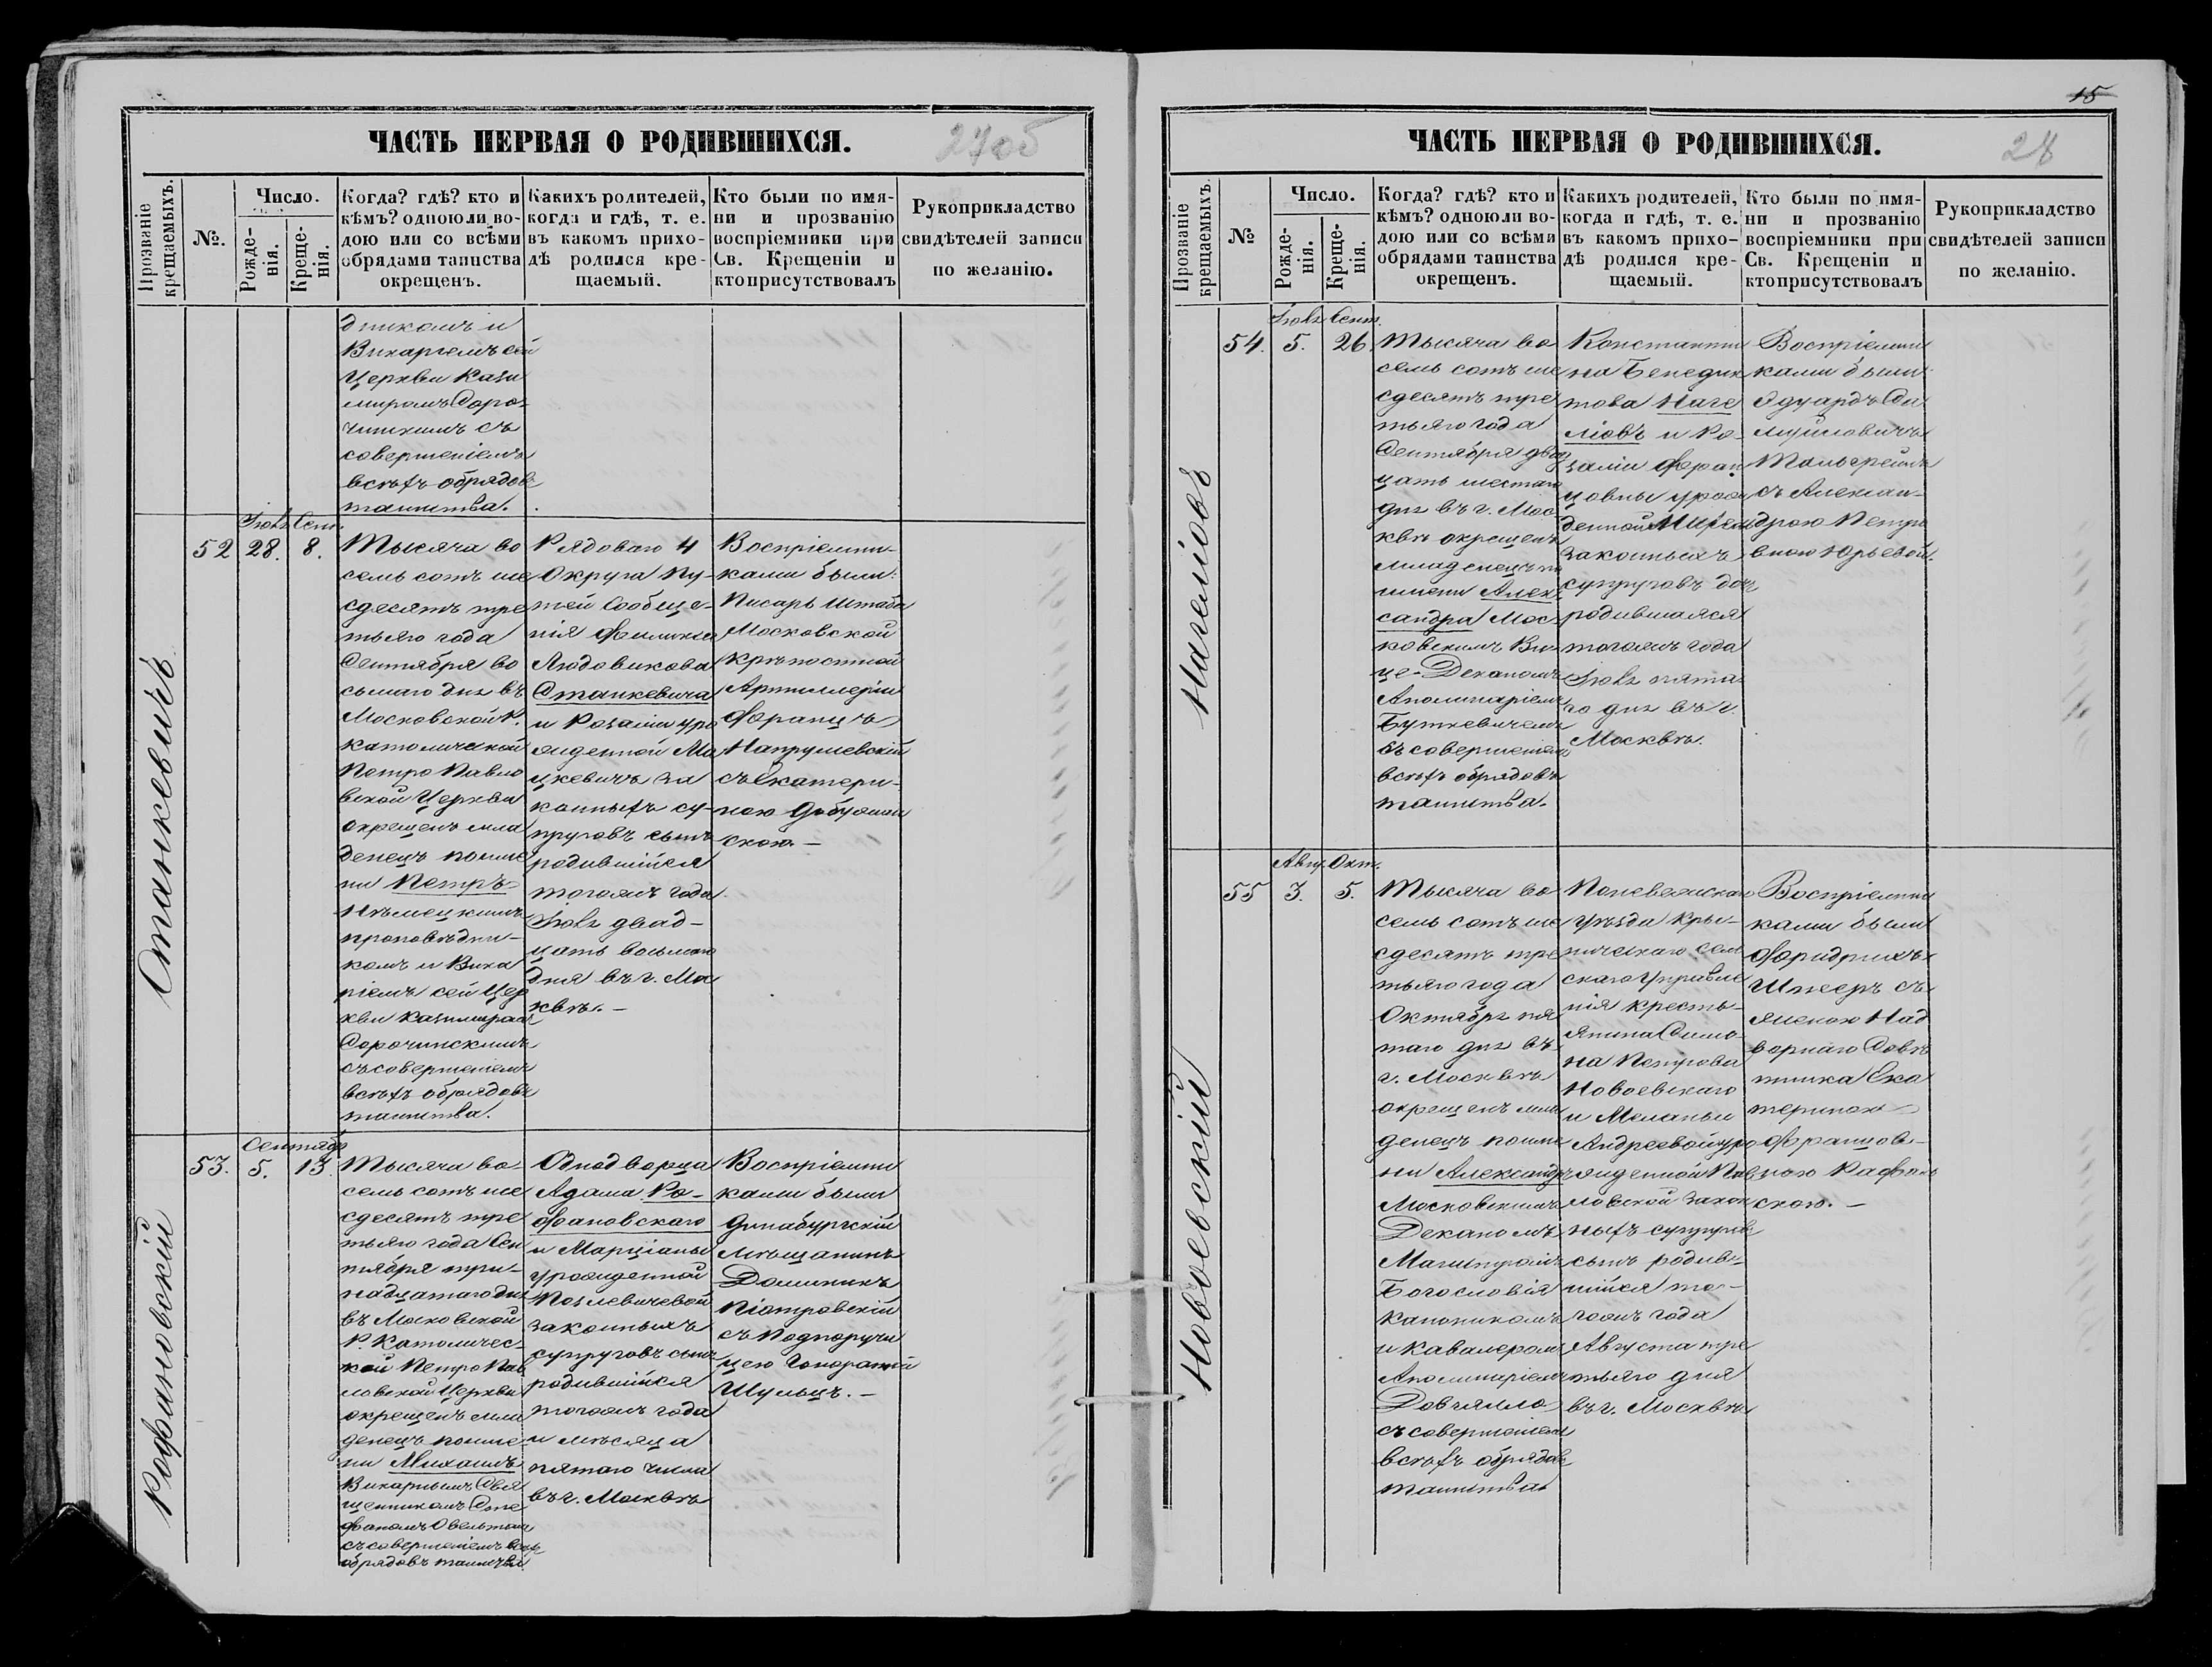 ЧАСТЬ ПЕРВАЯ О РОДИВШИХСЯ.
27об
Прозваніе крещаемыхъ.
№.
Число.
Рожде-
нія.
Креще-
нія.
Когда? гдѣ? кто и
кѣмъ? одною ли во-
дою или со всѣми
обрядами таинства
окрещенъ.
Какихъ родителей,
когда и гдѣ, т. е.
въ какомъ прихо-
дѣ родился кре-
щаемый.
Кто были по имя-
ни и прозванію
воспріемники при
Св. Крещеніи и
кто присутствовалъ
Рукоприкладство
свидѣтелей записи
по желанію.
дникомъ и
Викаріемъ сей
Церкви Кази
миромъ Доро-
чинскимъ съ
совершеніемъ
всѣхъ обрядовъ
таинства.
Станкевичъ
52
Іюль Сент.
28. 8.
Тысяча во
семь сотъ ше
сдесятъ тре
тьяго года
Сентября во
сьмаго дня въ
Московской Р.
Католической
Петро Павло
вской Церкви
окрещенъ мла
денецъ по име
ни Петръ
Нѣмецкимъ
проповѣдни-
комъ и Вика
ріемъ сей Цер
кви Казимиромъ
Дорочинскимъ
съ совершеніемъ
всѣхъ обрядовъ
таинства.
Рядоваго 4
Округа Пу-
тей Сообще-
нія Феликса
Людовикова
Станкевича
и Розаліи уро
жденной Ма
цкевичъ за
конныхъ су-
пруговъ сынъ
родившійся
тогожъ года
Іюля двад-
цать восьмаго
дня въ г. Мос
квѣ.—
Воспріемни-
ками были:
Писарь Штаба
Московской
Крѣпостной
Артиллеріи
Францъ
Напрушевскій
съ Екатери-
ною Добужин
скою.—
Рофановскій
53.
Сентябр
5. 13.
Тысяча во-
семь сотъ ше
сдесятъ тре
тьяго года Сен
тября три-
надцатаго дня
въ Московской
Р. Католичес-
кой Петро Пав
ловской Церкви
окрещенъ мла
денецъ по име
ни Михаилъ
Викарнымъ Свя
щенникомъ Сте
фаномъ Овельтомъ
съ совершеніемъ всѣхъ
обрядовъ таинства.
Однодворца
Адама Ро-
фановскаго
и Марціаны
урожденной
Козлевичевой
законныхъ
супруговъ сынъ
родившійся
тогожъ года
и мѣсяца
пятаго числа
въ г. Москвѣ
Воспріемни
ками были
Динабургскій
мѣщанинъ
Доминикъ
Піотровскій
съ Подпоручи
цею Гоноратой
Шульцъ.—
15
ЧАСТЬ ПЕРВАЯ О РОДИВШИХСЯ.
28
Прозваніе крещаемыхъ.
№
Число.
Рожде-
нія.
Креще-
нія.
Когда? гдѣ? кто и
кѣмъ? одною ли во-
дою или со всѣми
обрядами таинства
окрещенъ.
Какихъ родителей,
когда и гдѣ, т. е.
въ какомъ прихо-
дѣ родился кре-
щаемый.
Кто были по имя-
ни и прозванію
воспріемники при
Св. Крещеніи и
кто присутствовалъ
Рукоприкладство
свидѣтелей записи
по желанію.
Нагеліовъ
54.
Іюль Сент.
5. 26.
Тысяча во
семь сотъ ше
сдесятъ тре
тьяго года
Сентября двад
цать шестаго
дня въ г. Мос
квѣ окрещенъ
младенецъ по
имени Алек
сандра Мос-
ковскимъ Ви-
це-Деканомъ
Аполинаріемъ
Буткевичемъ
съ совершеніемъ
всѣхъ обрядовъ
таинства.
Константи
на Бенедик
това Наге
ліовъ и Ро-
заліи Фран
цовны урож
денной
законныхъ
супруговъ дочь
родившаяся
тогожъ года
Іюля пята
го дня въ г.
Москвѣ.
Воспріемни
ками были
Эдуардъ
муиловичъ
съ Алексан-
дрою Петро
вною Юрьевой.
Новоевскій
55
Авгу. Окт.
3. 5.
Тысяча во
семь сотъ ше
сдесятъ тре
тьяго года
Октября пя
таго дня въ
г. Москвѣ
окрещенъ мла
денецъ по име
ни Александръ
Московскимъ
Деканомъ
Магистромъ
Богословія
Каноникомъ
и Кавалеромъ
Аполинаріемъ
Довгялло
съ совершеніемъ
всѣхъ обрядовъ
таинства.
Поневежскаго
Уѣзда Кры-
ничскаго Сель
скаго Управле
нія кресть-
янина Симо-
на Петрова
Новоевскаго
и Меланьи
Андреевой уро
жденной Пав
ловской закон
ныхъ супруговъ
сынъ родив-
шійся то-
гожъ года
Августа тре
тьяго дня
въ г. Москвѣ
Воспріемни
ками были
Фридрихъ
Шпееръ съ
женою Над
ворнаго Совѣ
тника Ека
териною
Францов-
ною
скою.—